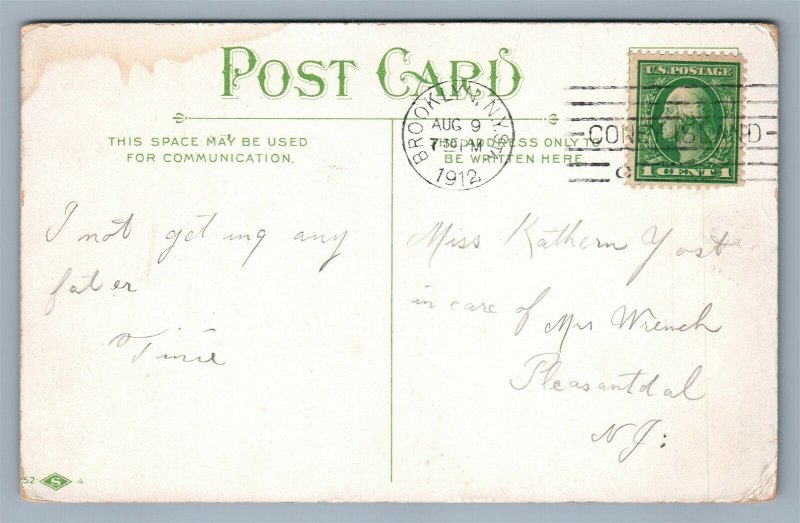 POST CARD
THIS SPACE MAY BE USED
FOR COMMUNICATION.
THE ADDRESS ONLY TO
BE WRITTEN HERE
BROOKLYN, N.Y. STA.
AUG 9
7-30 PM
1912
CONEY ISLAND
U.S. POSTAGE
1 CENT 1
I not geting any
fater
Tinie
Miss Kathern Yost
in care of
Mrs Wrench
Pleasantdal
N.J.
52 S 4